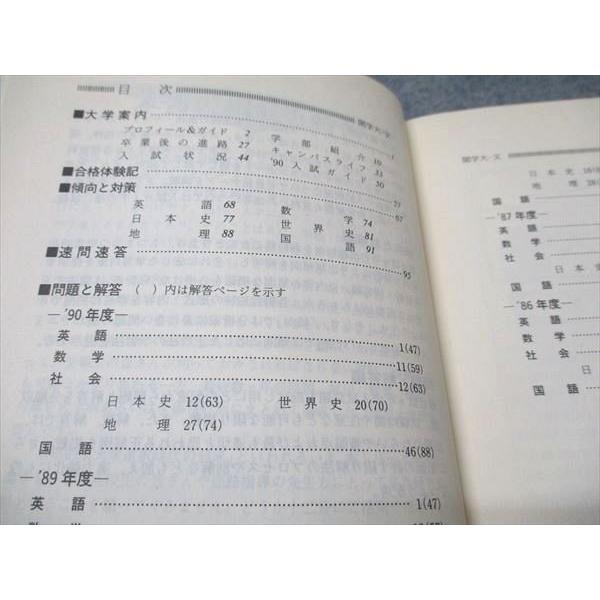 目 次
関学大-文
■大学案内 1
プロフィール&ガイド 2 学部紹介 19
卒業後の進路 27 キャンパスライフ 33
入試状況 44 '90入試ガイド 50
■合格体験記 57
■傾向と対策 67
英語 68 数学 74
日本史 77 世界史 81
地理 88 国語 91
■速問速答 95
■問題と解答 ( )内は解答ページを示す
—'90年度—
英語 1(47)
数学 11(59)
社会 12(63)
日本史 12(63) 世界史 20(70)
地理 27(74)
国語 46(88)
—'89年度—
英語 1(47)
数学
関学大-文
日本史
地理
国語
—'87年度—
英語
数学
社会
日本史
国語
—'86年度—
英語
数学
社会
日
国語